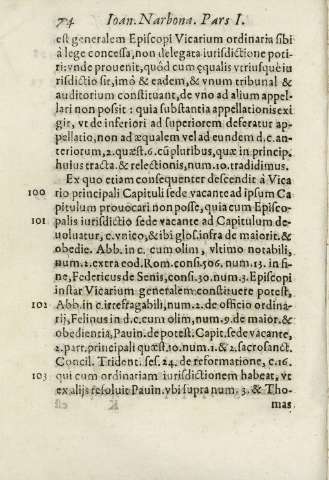 74 Ioan. Narbona. Pars I.
est generalem Episcopi Vicarium ordinariu sibi
à lege concessa, non delegata iurisdictione poti-
ri: vnde prouenit, quód cum ęqualis vtriusq̀ue iu
risdictio sit, imò & eadem, & vnum tribunal &
auditorium constituant, de vno ad alium appel-
lari non possit: quia substantia appellationis exi
git, vt de inferiori ad superiorem deferatur ap-
pellatio, non ad æqualem vel ad eundem d. c. an-
teriorum, 2. quæst. 6. cũ pluribus, quæ in princip.
huius tracta. & relectionis, num. 10. tradidimus.
Ex quo etiam consequenter descendit à Vica
100 rio principali Capituli sede vacante ad ipsum Ca
pitulum prouocari non posse, quia cum Episco-
101 palis iurisdictio sede vacante ad Capitulum de-
uoluatur, c. vnico, & ibi glos. infra de maiorit. &
obedie. Abb. in c. cum olim, vltimo notabili,
num. 1. extra eod. Rom. consi. 506. num. 13. in fi-
ne, Federicus de Senis, consi. 30. num. 3. Episcopi
instar Vicarium generalem constituere potest,
102 Abb. in c. irrefragabili, num. 2. de officio ordina-
rij, Felinus in d. c. cum olim, num. 9. de maior. &
obedientia, Pauin. de potest. Capit. sede vacante,
2. part. principali quæst. 10. num. 1. & 2. sacrosanct.
Concil. Trident. ses. 24. de reformatione, c. 16.
103 qui cum ordinariam iurisdictionem habeat, vt
ex alijs resoluit Pauin. vbi supra num. 3. & Tho-
mas